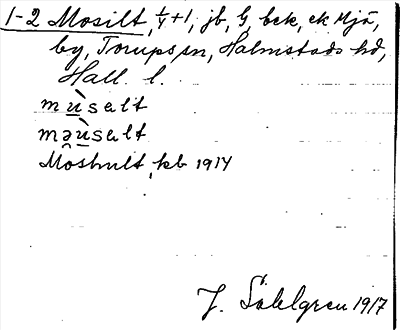 1-2 Mosilt, 1/4+1, jb, G bek, ek Mjä,
by, Torups sn, Halmstads hd,
Hall. l.
mùsalt
məùsalt
Moshult, kb 1914
J. Sahlgren 1917